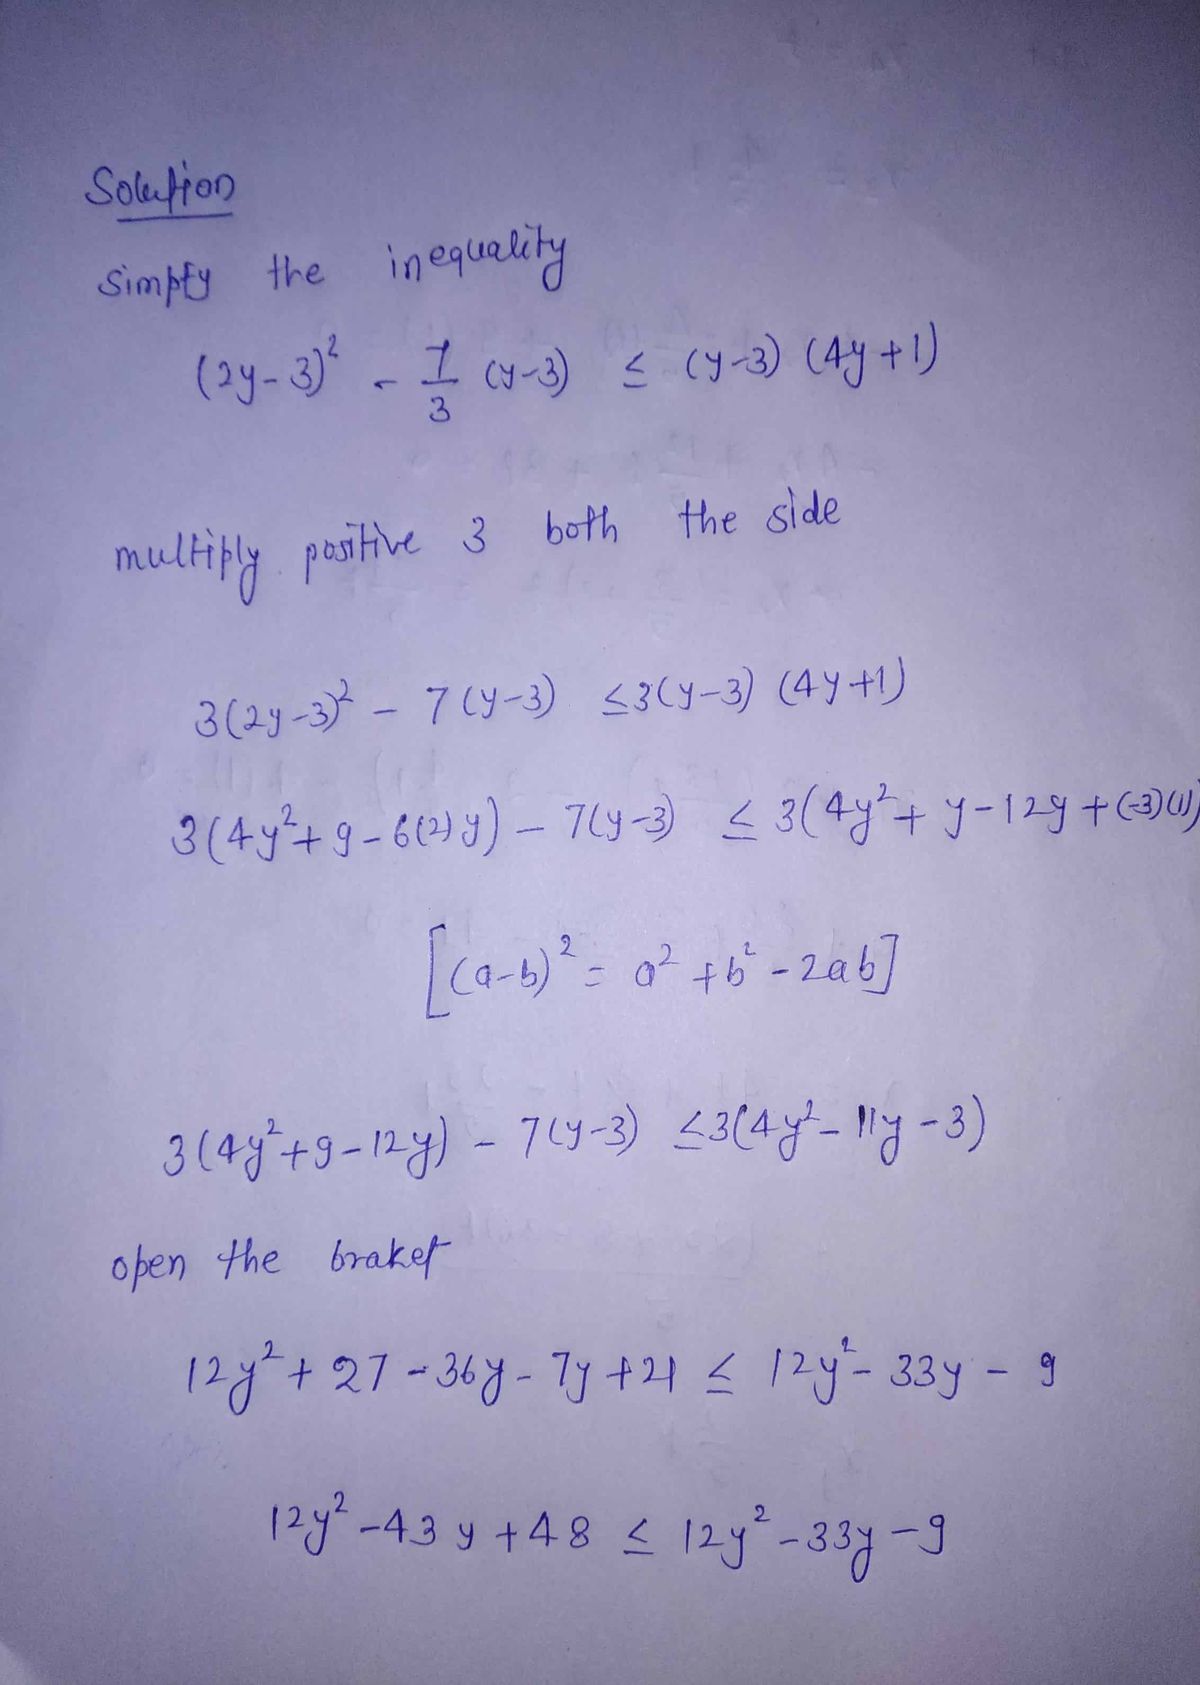 Solution
simpfy the inequality
(2y-3)² - 7/3 (y-3) ≤ (y-3) (4y+1)
multiply positive 3 both the side
3(2y-3)² - 7(y-3) ≤ 3(y-3) (4y+1)
3(4y²+9-6(2)y) - 7(y-3) ≤ 3(4y²+y-12y+(-3)(1))
[(a-b)² = a²+b²-2ab]
3(4y²+9-12y) - 7(y-3) ≤ 3(4y²-11y-3)
open the braket
12y²+27-36y-7y+21 ≤ 12y²-33y-9
12y²-43y+48 ≤ 12y²-33y-9